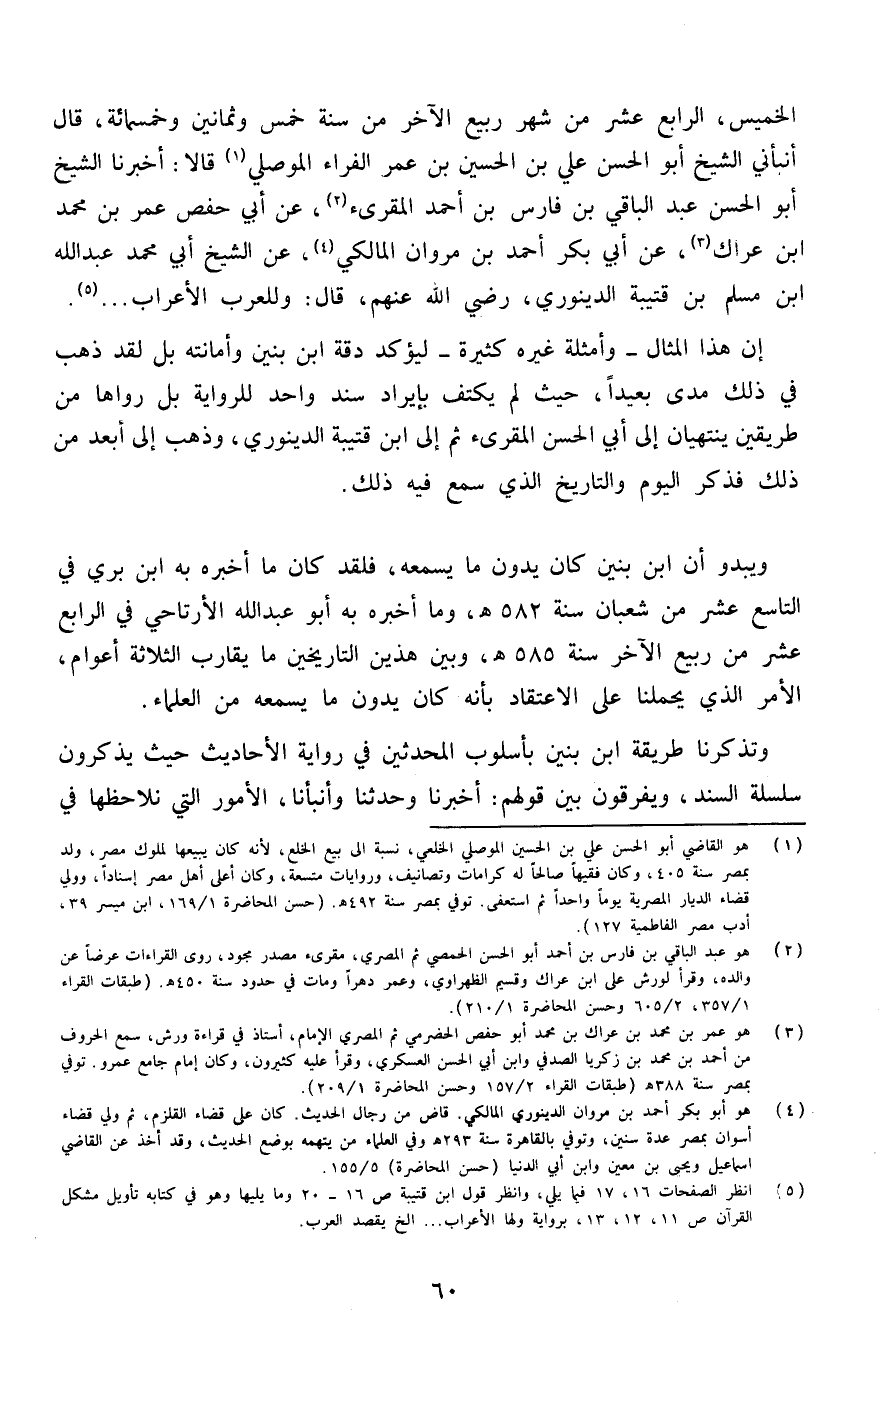 الخميس، الرابع عشر من شهر ربيع الآخر من سنة خمس وثمانين وخمسمائة، قال
أنبأني الشيخ أبو الحسن علي بن الحسين بن عمر الفراء الموصلي(١) قالا: أخبرنا الشيخ
أبو الحسن عبد الباقي بن فارس بن أحمد المقرىء(٢)، عن أبي حفص عمر بن محمد
ابن عراك(٣)، عن أبي بكر أحمد بن مروان المالكي(٤)، عن الشيخ أبي محمد عبدالله
ابن مسلم بن قتيبة الدينوري، رضي الله عنهم، قال: وللعرب الأعراب...(٥).
إن هذا المثال ـ وأمثلة غيره كثيرة ـ ليؤكد دقة ابن بنين وأمانته بل لقد ذهب
في ذلك مدى بعيداً، حيث لم يكتف بإيراد سند واحد للرواية بل رواها من
طريقين ينتهيان إلى أبي الحسن المقرىء ثم إلى ابن قتيبة الدينوري، وذهب إلى أبعد من
ذلك فذكر اليوم والتاريخ الذي سمع فيه ذلك.
ويبدو أن ابن بنين كان يدون ما يسمعه، فلقد كان ما أخبره به ابن بري في
التاسع عشر من شعبان سنة ٥٨٢ هـ، وما أخبره به أبو عبدالله الأرتاحي في الرابع
عشر من ربيع الآخر سنة ٥٨٥ هـ، وبين هذين التاريخين ما يقارب الثلاثة أعوام،
الأمر الذي يحملنا على الاعتقاد بأنه كان يدون ما يسمعه من العلماء.
وتذكرنا طريقة ابن بنين بأسلوب المحدثين في رواية الأحاديث حيث يذكرون
سلسلة السند، ويفرقون بين قولهم: أخبرنا وحدثنا وأنبأنا، الأمور التي نلاحظها في
(١) هو القاضي أبو الحسن علي بن الحسين الموصلي الخلعي، نسبة الى بيع الخلع، لأنه كان يبيعها لملوك مصر، ولد
بمصر سنة ٤٠٥، وكان فقيهاً صالحاً له كرامات وتصانيف، وروايات متسعة، وكان أعلى أهل مصر إسناداً، وولي
قضاء الديار المصرية يوماً واحداً ثم استعفى. توفي بمصر سنة ٤٩٢هـ. (حسن المحاضرة ١٦٩/١، ابن ميسر ٣٩،
أدب مصر الفاطمية ١٢٧).
(٢) هو عبد الباقي بن فارس بن أحمد أبو الحسن الحمصي ثم المصري، مقرىء مصدر مجود، روى القراءات عرضاً عن
والده، وقرأ لورش على ابن عراك وقسيم الظهراوي، وعمر دهراً ومات في حدود سنة ٤٥٠هـ. (طبقات القراء
٣٥٧/١، ٦٠٥/٢ وحسن المحاضرة ٢١٠/١).
(٣) هو عمر بن محمد بن عراك بن محمد أبو حفص الحضرمي ثم المصري الإمام، أستاذ في قراءة ورش، سمع الحروف
من أحمد بن محمد بن زكريا الصدفي وابن أبي الحسن العسكري، وقرأ عليه كثيرون، وكان إمام جامع عمرو. توفي
بمصر سنة ٣٨٨هـ (طبقات القراء ١٥٧/٢ وحسن المحاضرة ٢٠٩/١).
(٤) هو أبو بكر أحمد بن مروان الدينوري المالكي. قاض من رجال الحديث. كان على قضاء القلزم، ثم ولي قضاء
أسوان بمصر عدة سنين، وتوفي بالقاهرة سنة ٢٩٣هـ وفي العلماء من يتهمه بوضع الحديث، وقد أخذ عن القاضي
اسماعيل ويحيى بن معين وابن أبي الدنيا (حسن المحاضرة) ١٥٥/٥.
(٥) انظر الصفحات ١٦، ١٧ فيما يلي، وانظر قول ابن قتيبة ص ١٦ ـ ٢٠ وما يليها وهو في كتابه تأويل مشكل
القرآن ص ١١، ١٢، ١٣، برواية ولها الأعراب... الخ يقصد العرب.
٦٠